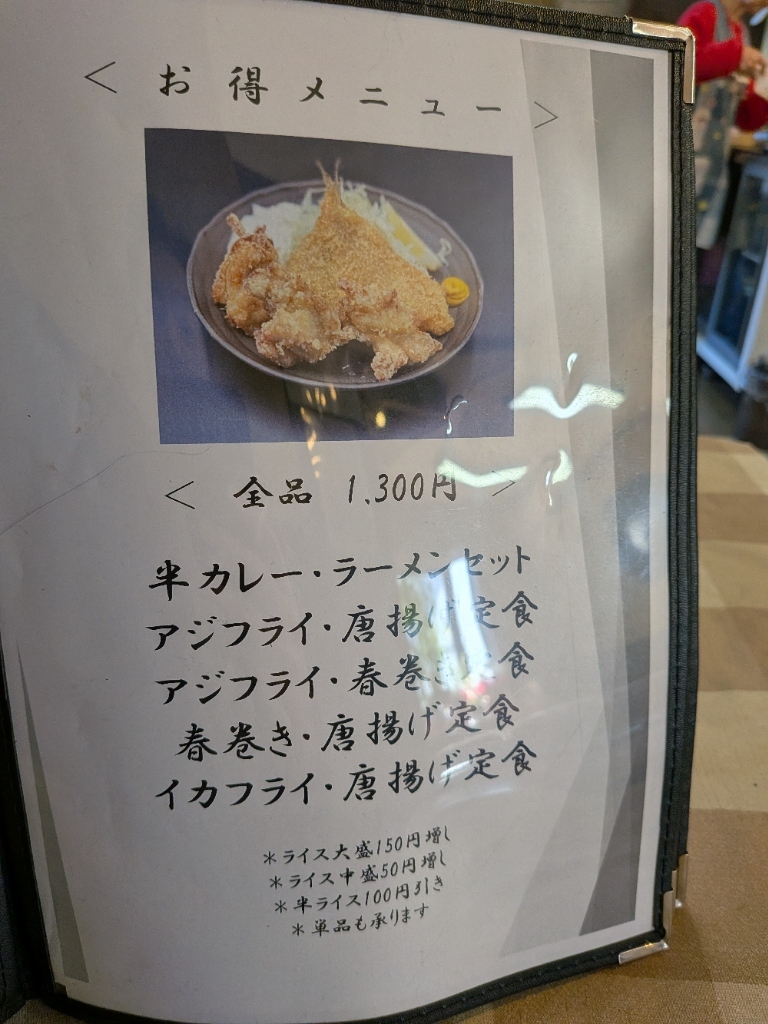 ＜お得メニュー＞
＜ 全品 1,300円 ＞
半カレー・ラーメンセット
アジフライ・唐揚げ定食
アジフライ・春巻き定食
春巻き・唐揚げ定食
イカフライ・唐揚げ定食
＊ライス大盛150円増し
＊ライス中盛50円増し
＊半ライス100円引き
＊単品も承ります